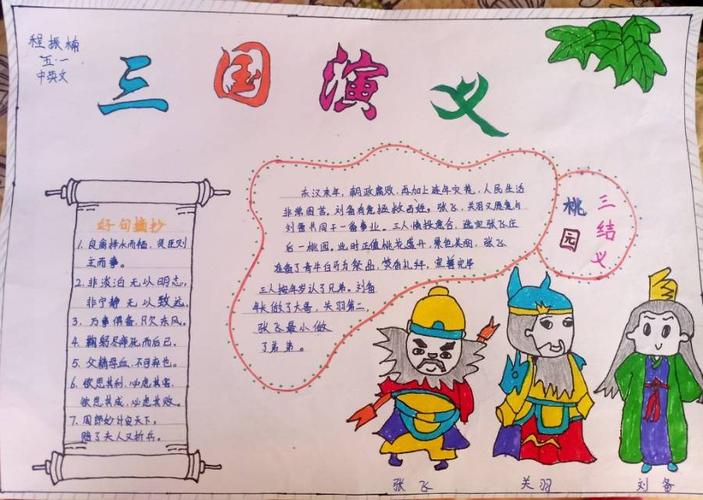 程振楠
五·一
中英文
三国演义
好句摘抄
1. 良禽择木而栖，贤臣则
主而事。
2. 非淡泊无以明志，
非宁静无以致远。
3. 万事俱备，只欠东风。
4. 鞠躬尽瘁，死而后已。
5. 父精母血，不可弃也。
6. 欲思其利，必虑其害，
欲思其成，必虑其败。
7. 周郎妙计安天下，
赔了夫人又折兵。
东汉末年，朝政腐败，再加上连年灾荒，人民生活
非常困苦。刘备有意拯救百姓，张飞、关羽又愿意与
刘备共同干一番事业。三人情投意合，选定张飞庄
后一桃园。此时正值桃花盛开，景色美丽，张飞
准备了青牛白马为祭品，焚香礼拜，宣誓完毕
三人按年岁认了兄弟。刘备
年长做了大哥，关羽第二
张飞最小做
了弟弟。
桃园
三结义
张飞
关羽
刘备